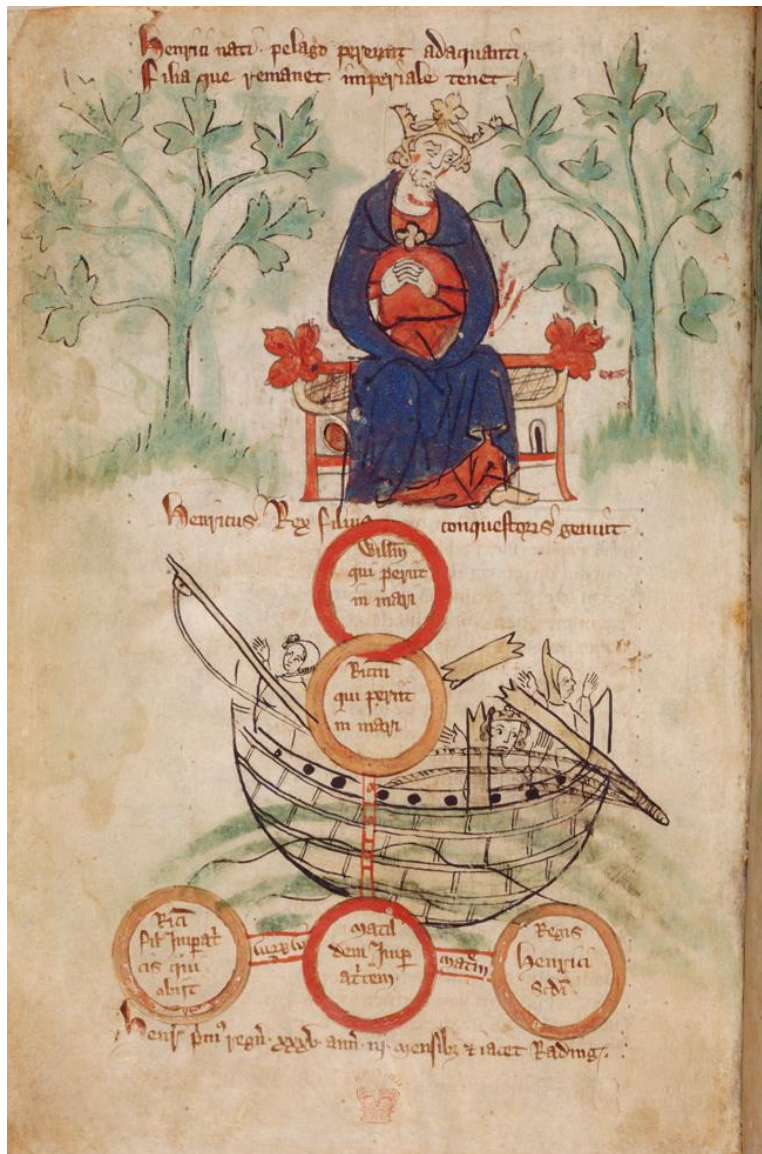 Henrici nati pelago perierunt adaquanti.
Filia que remanet. imperiale tenet.
Henricus Rex filius conquestoris genuit
Willm
qui periit
in mari
Ricm
qui periit
in mari
Rici
fil Imperat
cis qui
obiit
Matil
dem Imp
atcem
matrem
Regis
Henrici
scdi.
Henr pm regn. xxxv. ann. iij. mensibz & iacet Rading.